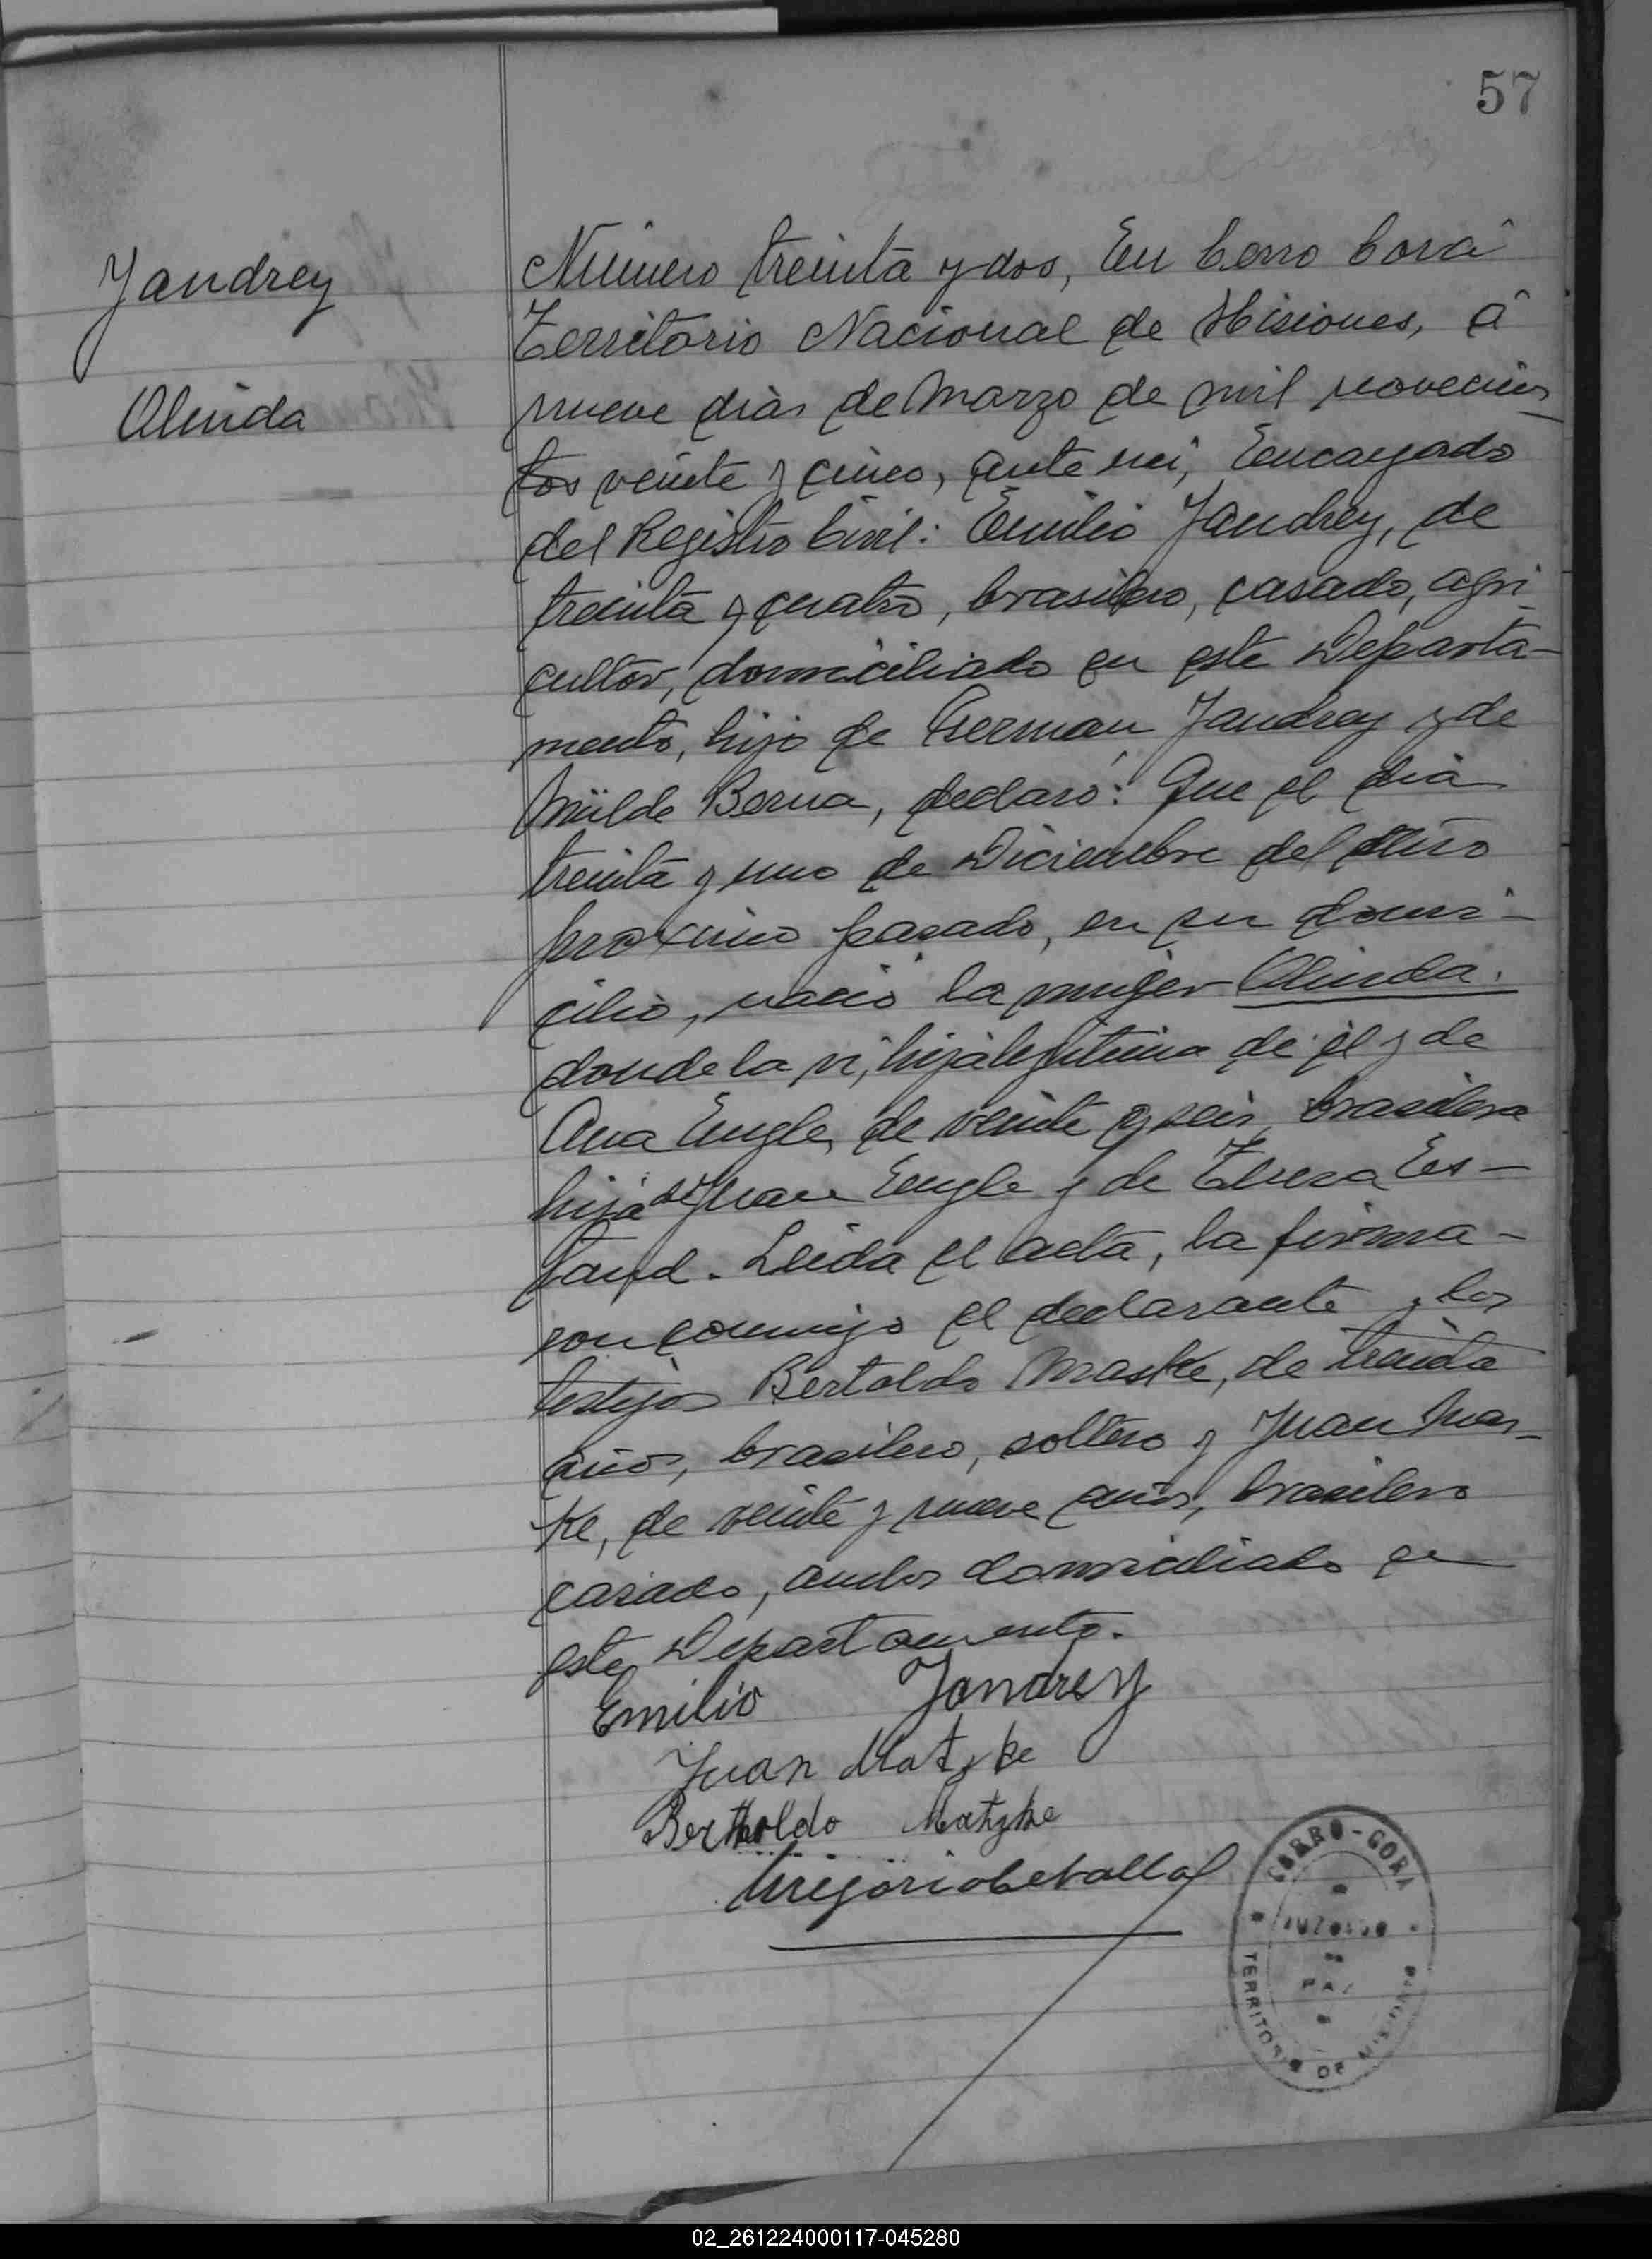 57
Jandrey
Olinda
Número treinta y dos, En Cerro Corá
Territorio Nacional de Misiones, á
nueve dias de Marzo de mil novecien
tos veinte y cinco, ante mi, Encargado
del Registro Civil: Emilio Jandrey, de
treinta y cuatro, brasilero, casado, agri
cultor, domiciliado en este Departa-
mento, hijo de German Jandrey y de
Milde Berna, declaró: Que el dia
treinta y uno de Diciembre del año
proximo pasado, en su domi-
cilio, nació la mujer Olinda.
donde la vi, hija lejitima de él y de
Ana Engle, de veinte y seis, brasilera
hija de Juan Engle y de
pand. Leida el acta, la firma-
ron conmigo el declarante y los
testigos Bertoldo Maske, de treinta
años, brasilero, soltero y Juan Mas-
ke, de veinte y nueve años, brasilero
casado, ambos domiciliado en
este Departamento.
Emilio Jandrey
Juan Matzke
Bertholdo Matzke
Gregorio Cevallo
CERRO-CORA
JUZGADO
DE
PAZ
TERRITORIO DE MISIONES
02_261224000117-045280